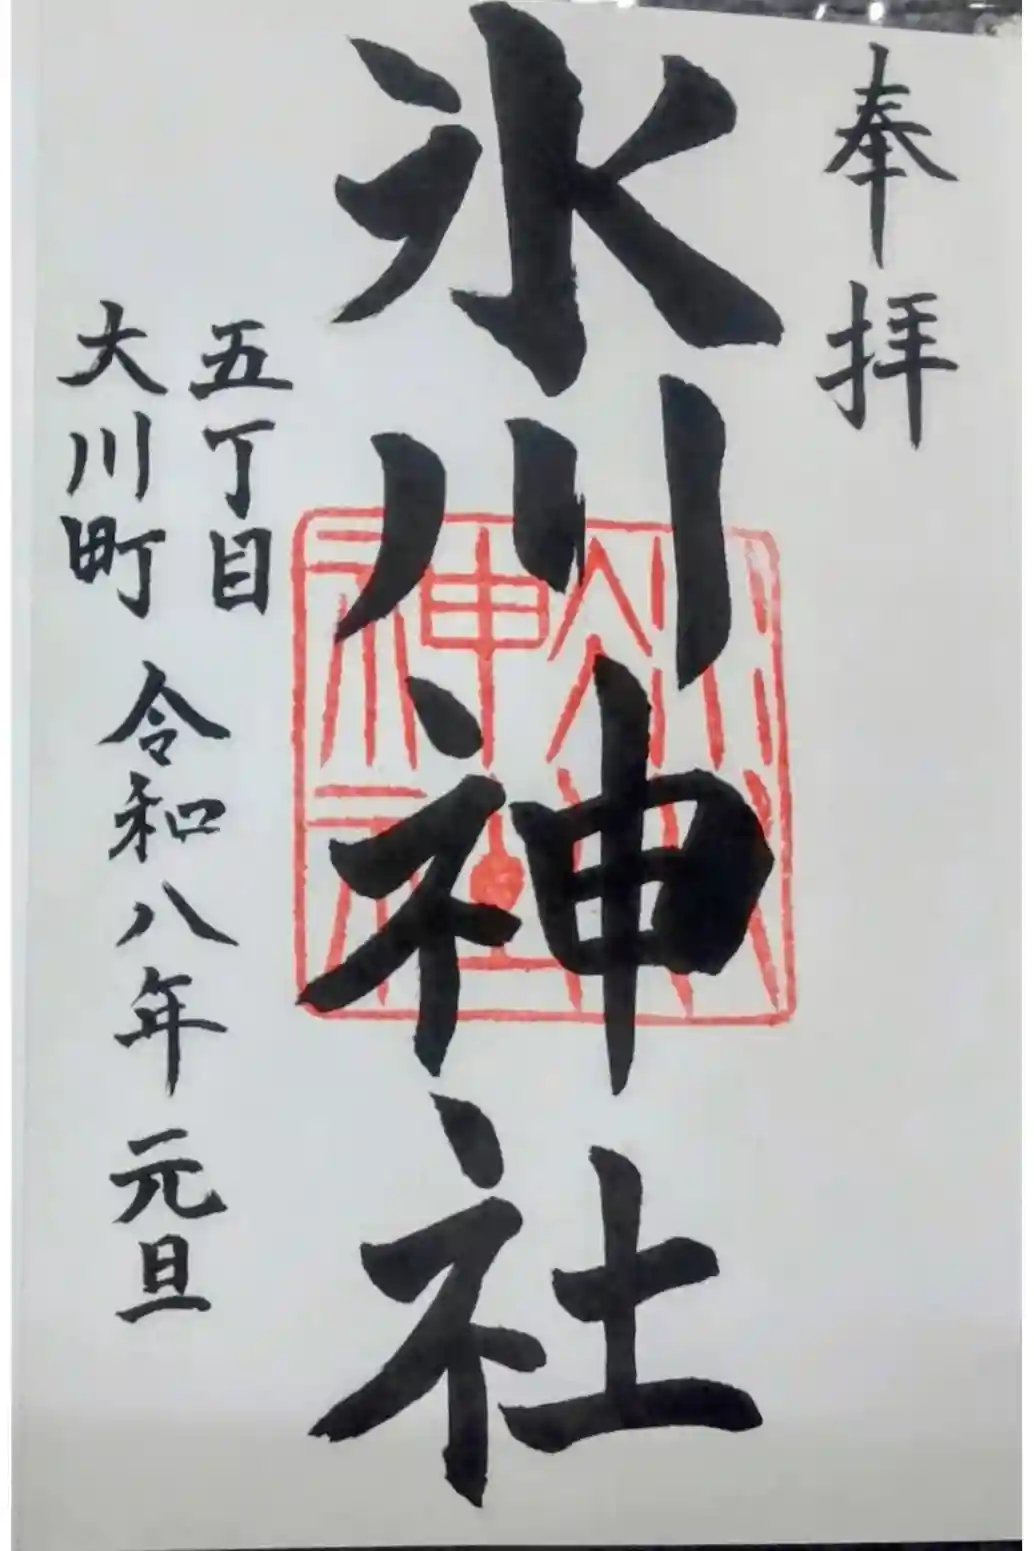 奉拝
氷川神社
氷川
神社
五丁目
大川町
令和八年 元旦